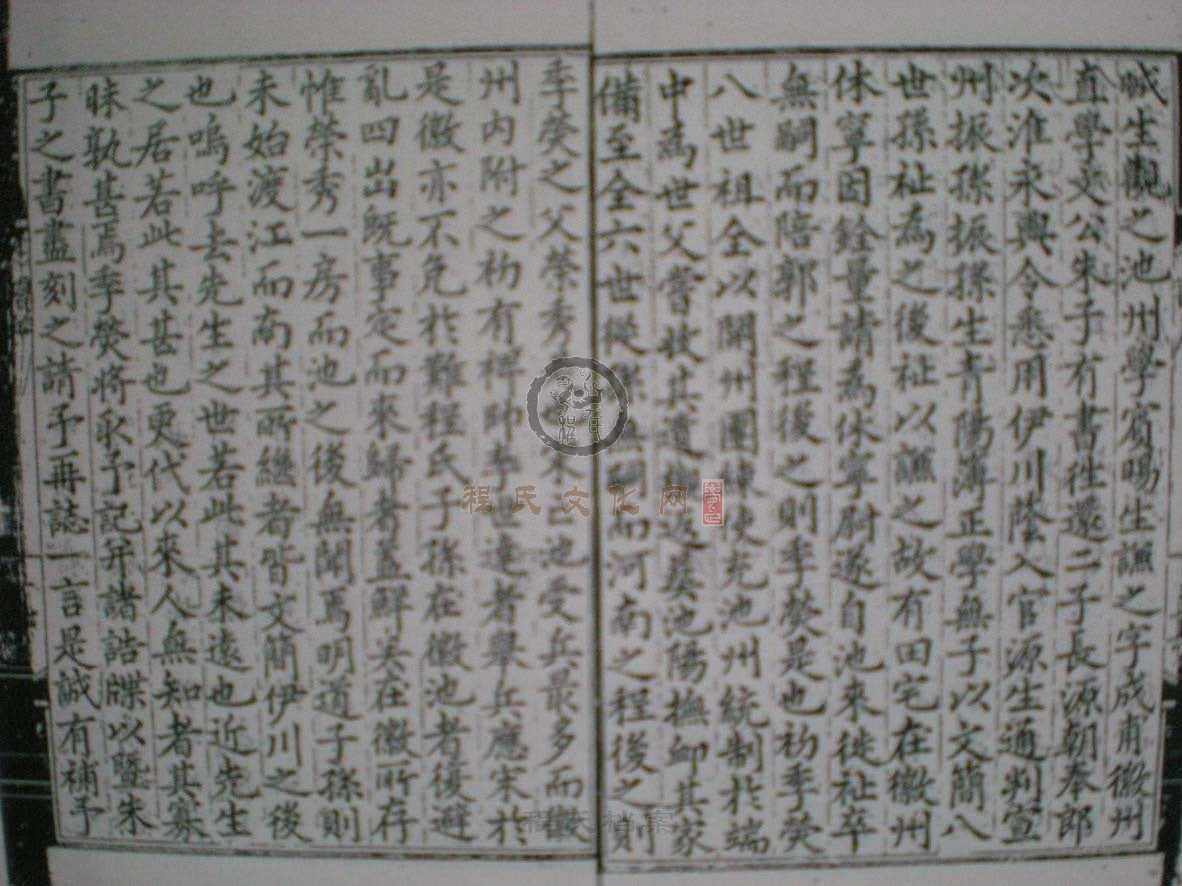 喊生觀之池州學賓暘生譕之字成甫徽州
直學夫公朱子有書徃還二子長源朝奉郎
次淮永興令悉用伊川蔭入官源生通判䆠
州振孫振孫生青陽簿正學無子以文簡八
世孫祉為之後祉以譕之故有田宅在徽州
休寧因銓量請為休寧尉遂自池來徙祉卒
無嗣而陪郭之程後之則季葵是也初季葵
八世祖全以開州團練使充池州統制於端
中為世父嘗收其遺
池陽撫卹其家
備至全六世從孫無嗣而河南之程後之則
季葵之父榮秀
池受兵最多而徽
州内附之初有裨帥李世逹者舉兵應宋於
是徽亦不免於難程氏子孫在徽池者復避
亂四出既事定而來歸者蓋鮮矣在徽所存
惟榮秀一房而池之後無聞焉明道子孫則
未始渡江而南其所繼
皆文簡伊川之後
也嗚呼去先生之世若此其未逺也近先生
之居若此其甚也更代以來人無知者其寡
昧孰甚焉季葵將求予記并諸誥牒以曁朱
子之書盡刻之請予再誌一言是誠有補予
程氏文化网